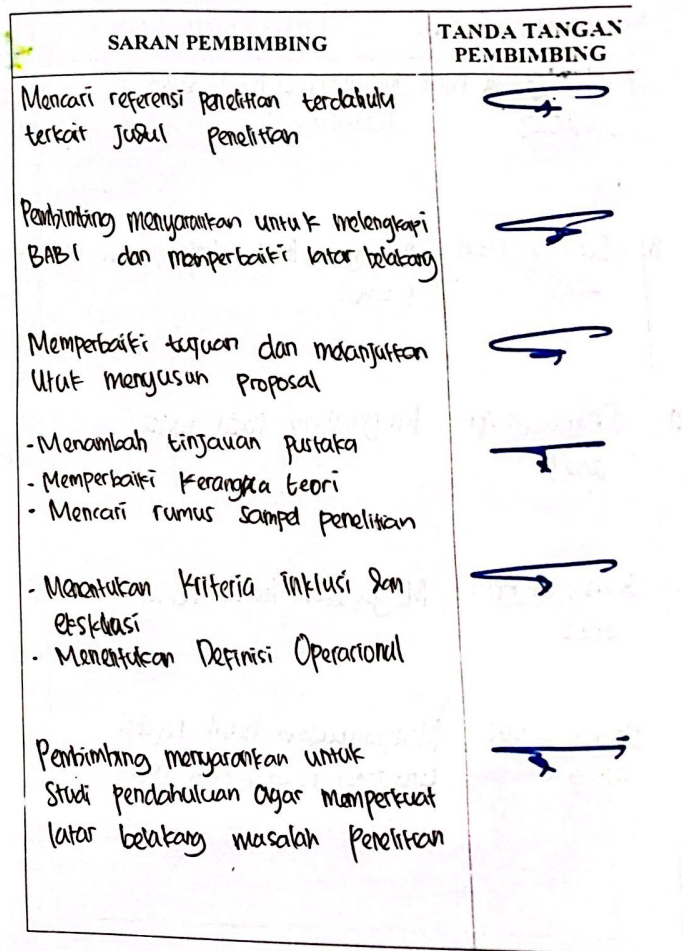 SARAN PEMBIMBING
TANDA TANGAN
PEMBIMBING
Mencari referensi penelitian terdahulu
terkait Judul penelitian
Pembimbing menyarankan untuk melengkapi
BAB I dan memperbaiki latar belakang
Memperbaiki tujuan dan melanjutkan
Utuk menyusun proposal
- Menambah tinjauan pustaka
- Memperbaiki kerangka teori
- Mencari rumus sampel penelitian
- Menentukan kriteria inklusi dan
eksklusi
- Menentukan Definisi Operasional
Pembimbing menyarankan untuk
Studi pendahuluan agar memperkuat
latar belakang masalah penelitian